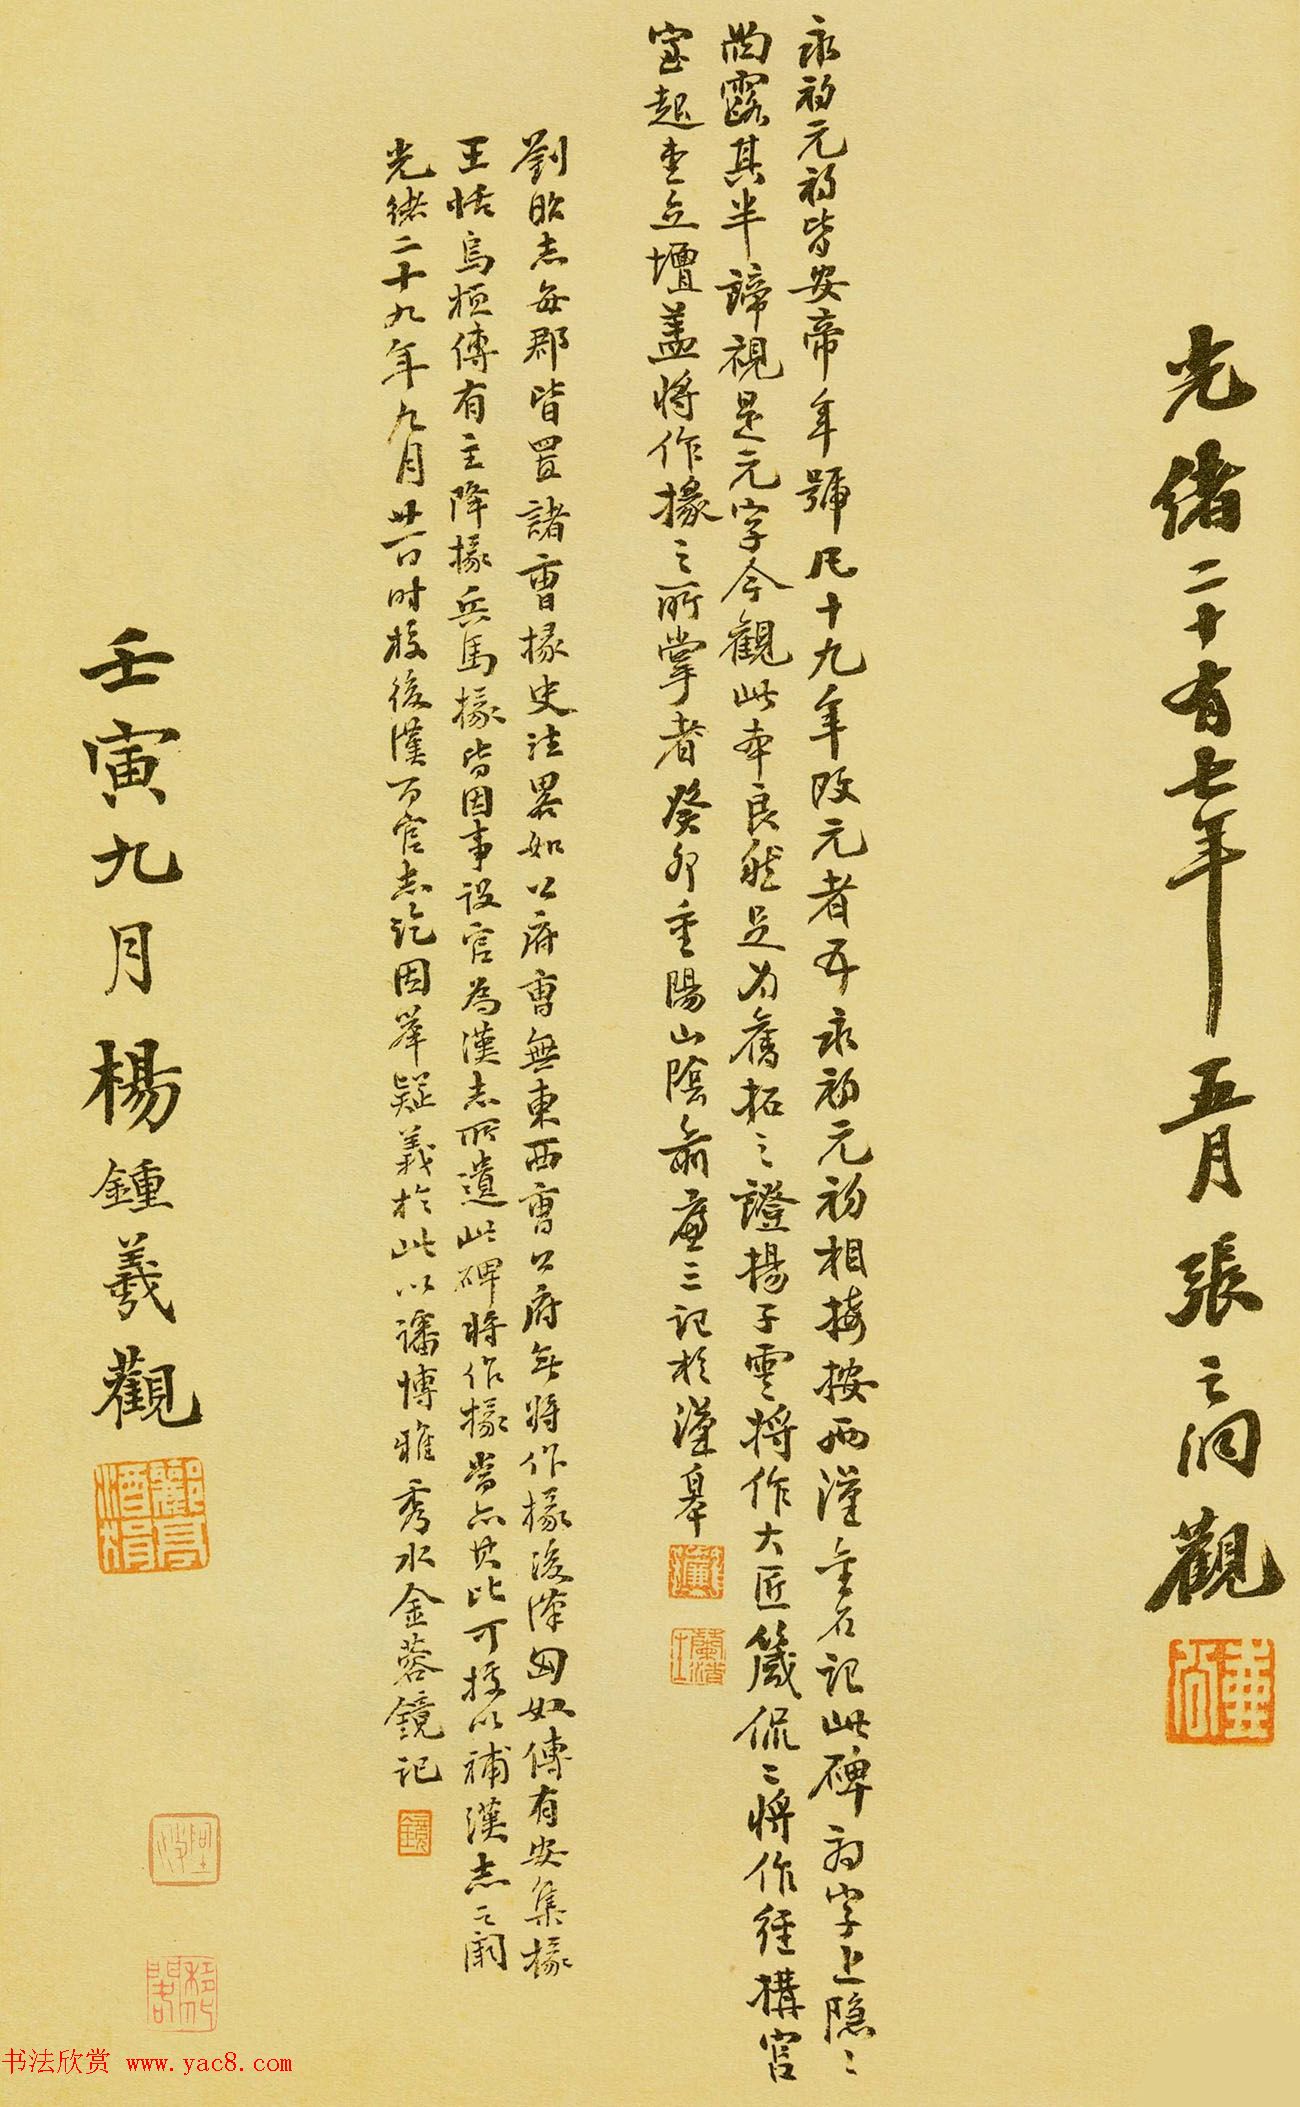 光緒二十有七年五月張之洞觀
永初元初皆安帝年年號凡十九年改元者五永初元初相接按兩漢金石記此碑初字上隱〻
尚露其半諦視是元字今觀此本良然足為舊拓之證揚子雲將作大匠箴侃〻將作經構宮
室起垂立壇蓋將作掾之所掌者癸卯重陽山陰俞廉三記於漢皋
劉昭志每郡皆置諸曹掾史注畧如公府曹無東西曹公府無將作掾後漢匈奴傳有安集掾
王恬烏桓傳有主降掾兵馬掾皆因事設官為漢志所遺此碑將作掾當亦其比可據以補漢志之闕
光緒二十九年九月廿一日時校後漢百官志訖因舉疑義於此以諗博雅秀水金蓉鏡記
壬寅九月楊鍾羲觀
书法欣赏 www.yac8.com